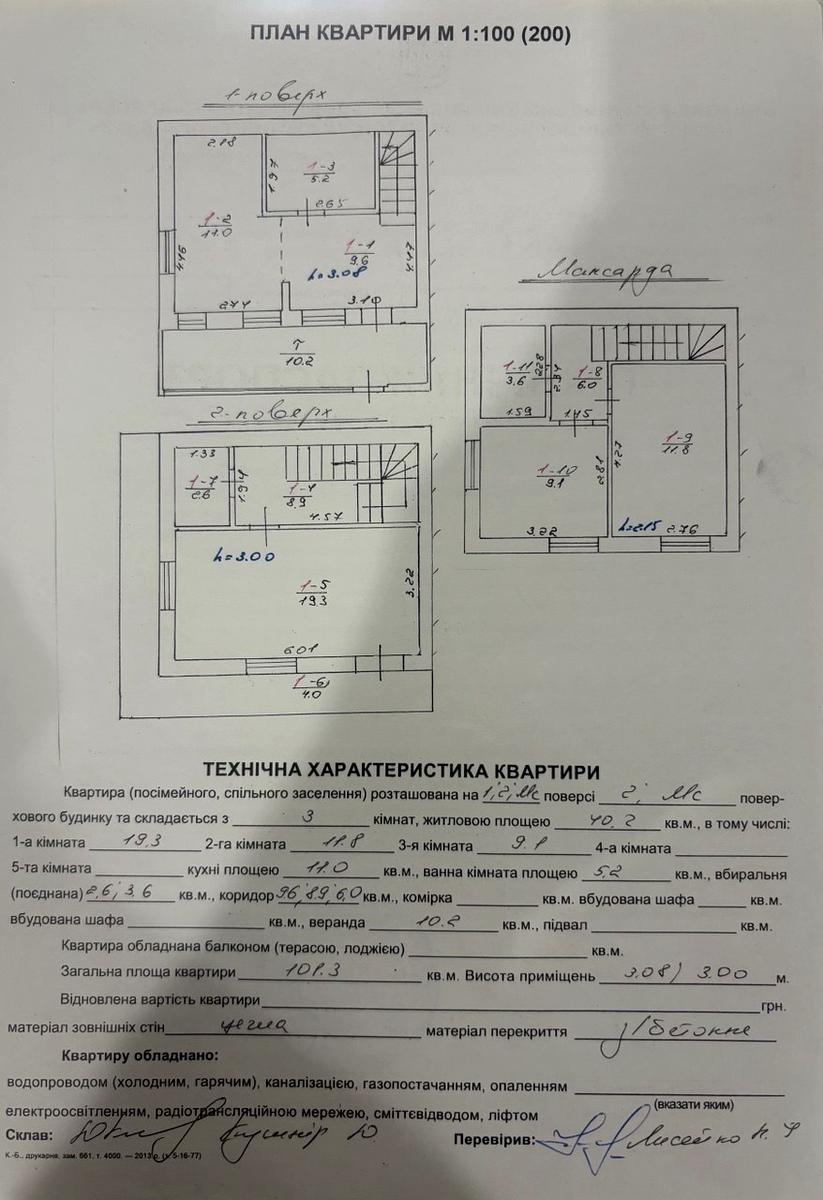 ПЛАН КВАРТИРИ М 1:100 (200)
1-поверх
2.18
1-3
5.2
1.97
2.65
1-2
11.0
4.46
1-1
9.6
h=3.08
4.47
2.74
3.10
Т
10.2
Мансарда
1-11
3.6
2.28
1.59
1-8
6.0
2.34
1.45
1-9
11.8
4.27
1-10
9.1
2.81
3.22
h=2.15
2.76
2-поверх
1.33
1-7
2.6
1.94
1-4
8.9
4.57
h=3.00
1-5
19.3
3.22
6.01
1-6
4.0
ТЕХНІЧНА ХАРАКТЕРИСТИКА КВАРТИРИ
Квартира (посімейного, спільного заселення) розташована на 1, 2, Мс поверсі 2, Мс повер-
хового будинку та складається з 3 кімнат, житловою площею 40,2 кв.м., в тому числі:
1-а кімната 19,3 2-га кімната 11.8 3-я кімната 9.1 4-а кімната
5-та кімната кухні площею 11.0 кв.м., ванна кімната площею 5,2 кв.м., вбиральня
(поєднана) 2,6; 3.6 кв.м., коридор 9.6, 8.9, 6.0 кв.м., комірка кв.м. вбудована шафа кв.м.
вбудована шафа кв.м., веранда 10.2 кв.м., підвал кв.м.
Квартира обладнана балконом (терасою, лоджією) кв.м.
Загальна площа квартири 101.3 кв.м. Висота приміщень 3.08; 3.00 м.
Відновлена вартість квартири грн.
матеріал зовнішніх стін цегла матеріал перекриття з/бетонне
Квартиру обладнано:
водопроводом (холодним, гарячим), каналізацією, газопостачанням, опаленням
(вказати яким)
електроосвітленням, радіотрансляційною мережею, сміттєвідводом, ліфтом
Склав: Кушнір Ю. Перевірив:
К.-Б., друкарня, зам. 661, т. 4000. — 2013 р. (т. 5-16-77)